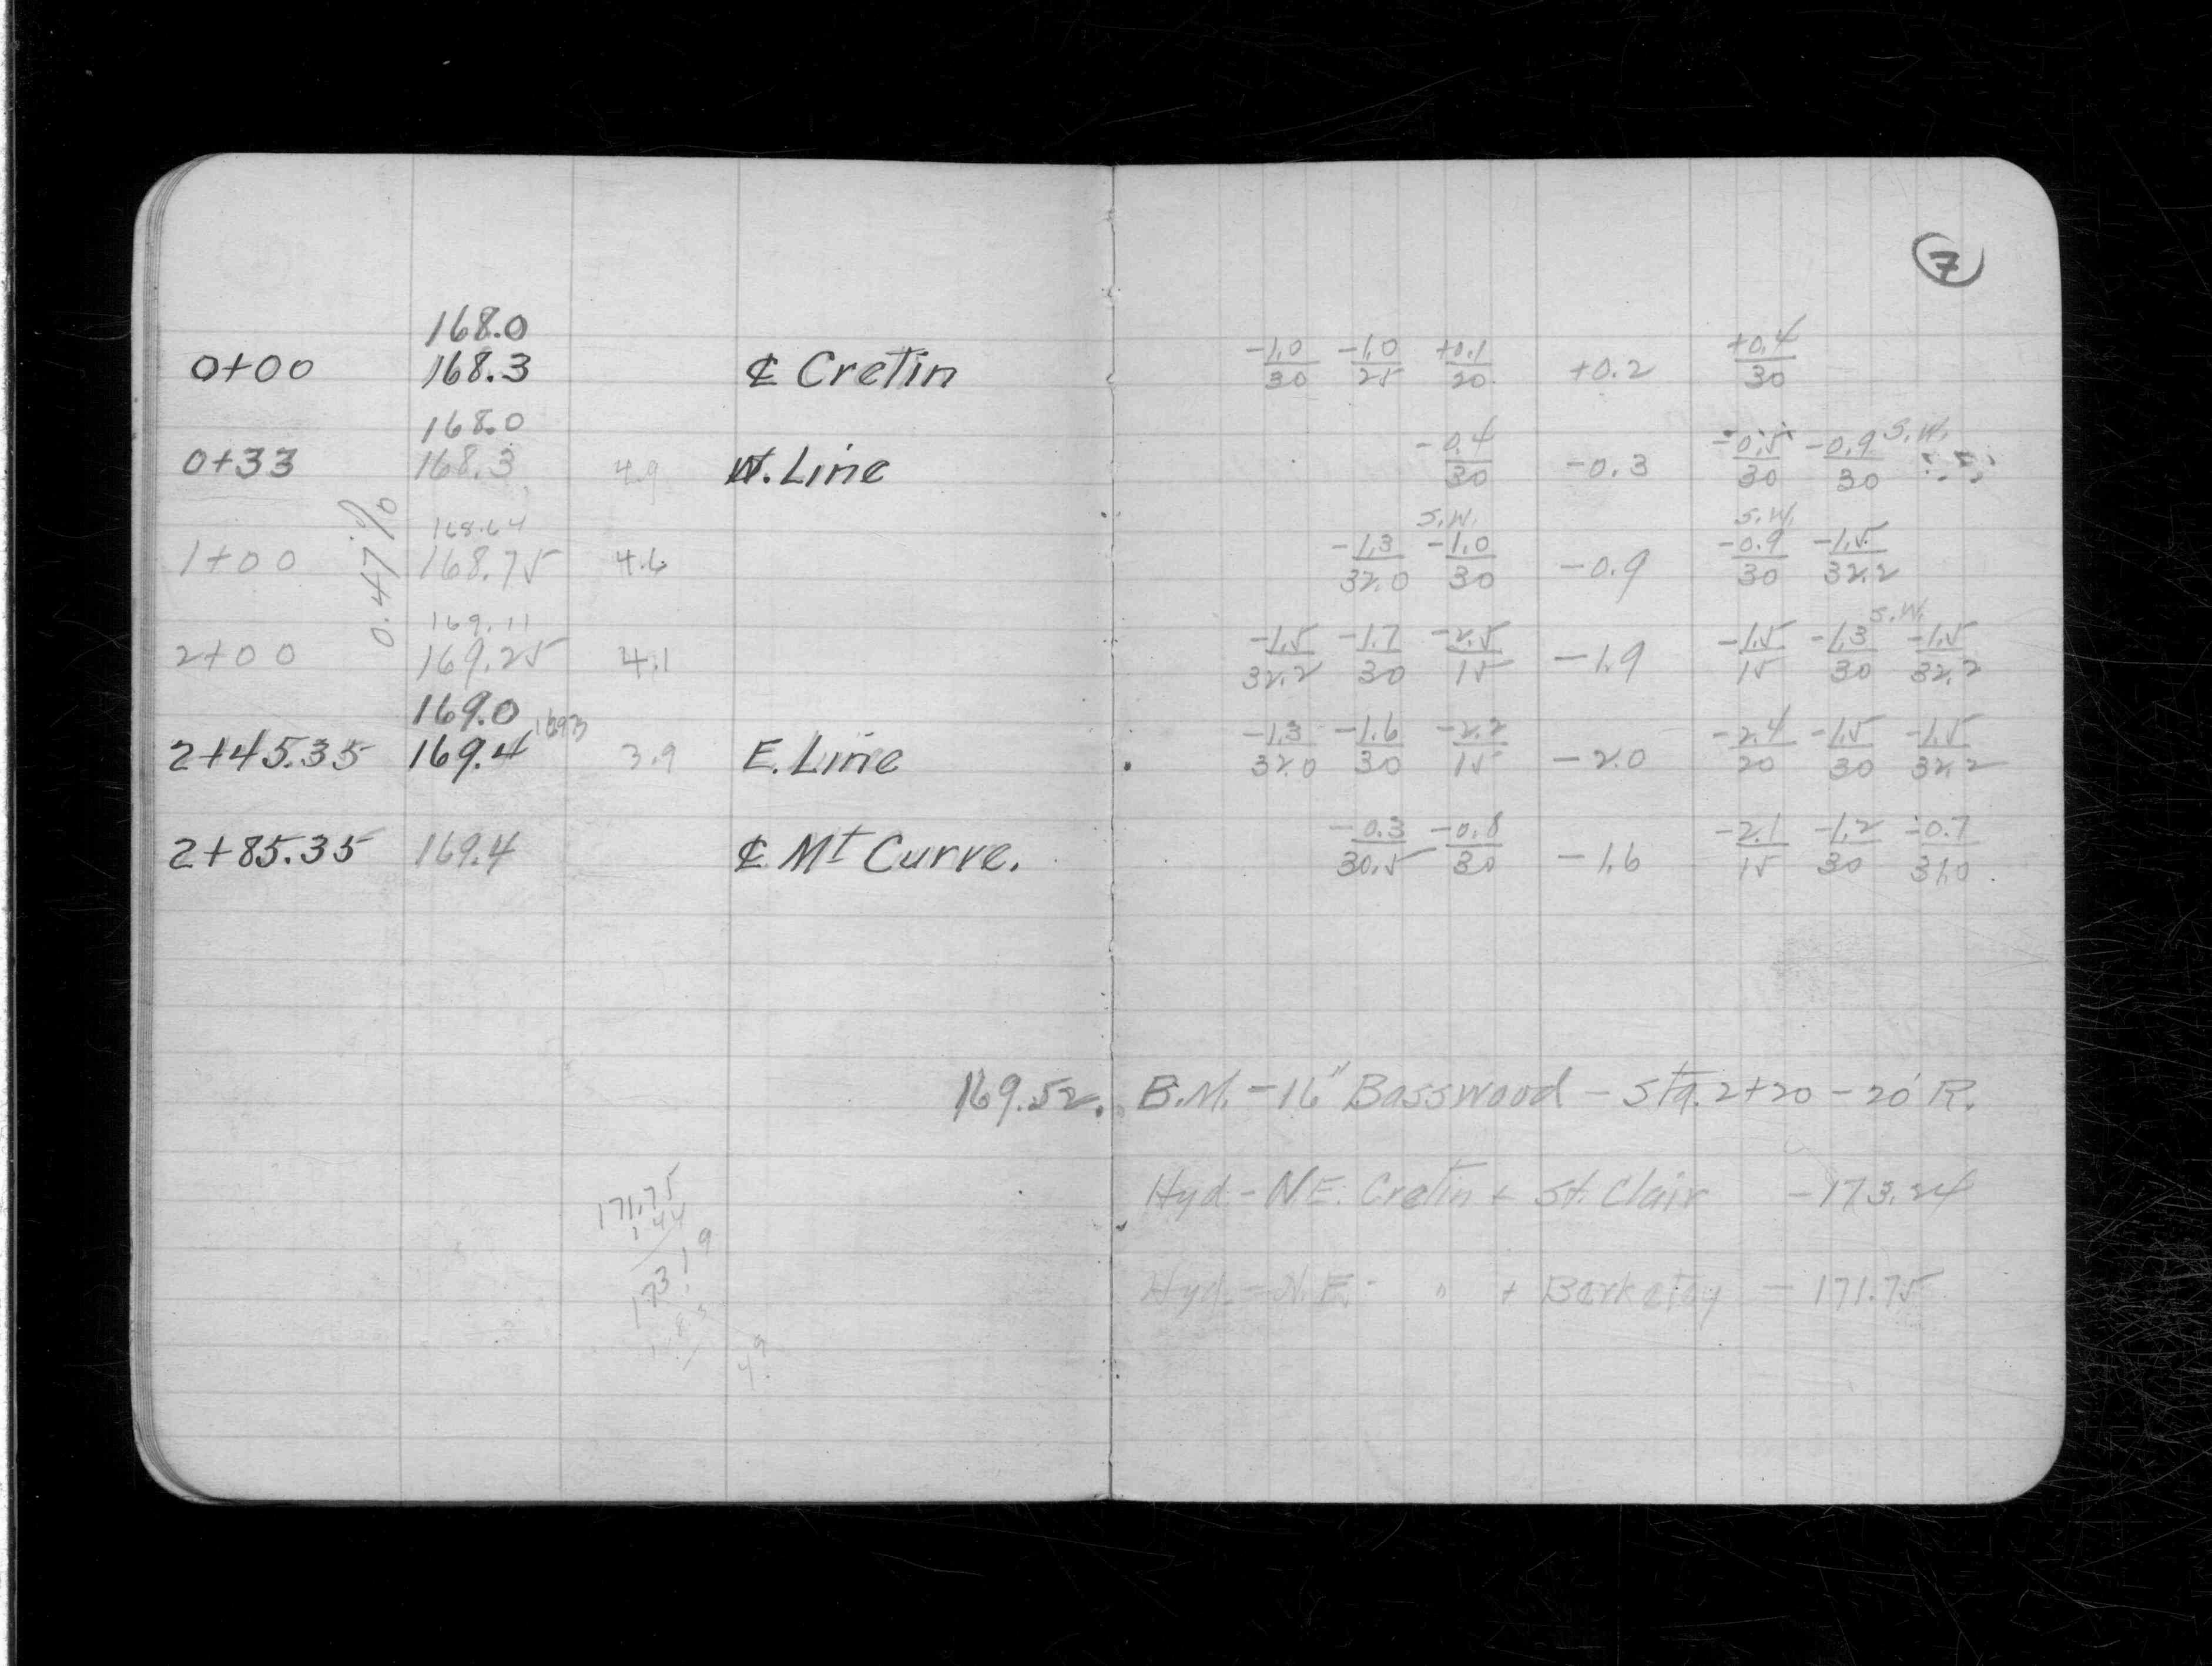 7
168.0
0+00 168.3 ℄ Cretin -1.0/30 -1.0/25 +0.1/20 +0.2 +0.4/30
168.0
0+33 168.3 4.9 W. Line -0.4/30 -0.3 -0.5/30 -0.9/30 S.W.
0.47%
168.64 S.W. S.W.
1+00 168.75 4.6 -1.3/32.0 -1.0/30 -0.9 -0.9/30 -1.5/32.2
169.11 S.W.
2+00 169.25 4.1 -1.5/32.2 -1.7/30 -2.5/15 -1.9 -1.5/15 -1.3/30 -1.5/32.2
169.0 169.3
2+45.35 169.4 3.9 E. Line -1.3/32.0 -1.6/30 -2.2/15 -2.0 -2.4/20 -1.5/30 -1.5/32.2
2+85.35 169.4 ℄ Mt Curve. -0.3/30.5 -0.8/30 -1.6 -2.1/15 -1.2/30 -0.7/31.0
169.52. B.M. - 16" Basswood - Sta. 2+20 - 20' R.
Hyd - N.E. Cretin + St. Clair - 173.24
Hyd. - N.E. " + Berkeley - 171.75
171.75
1.44
173.19
4.9